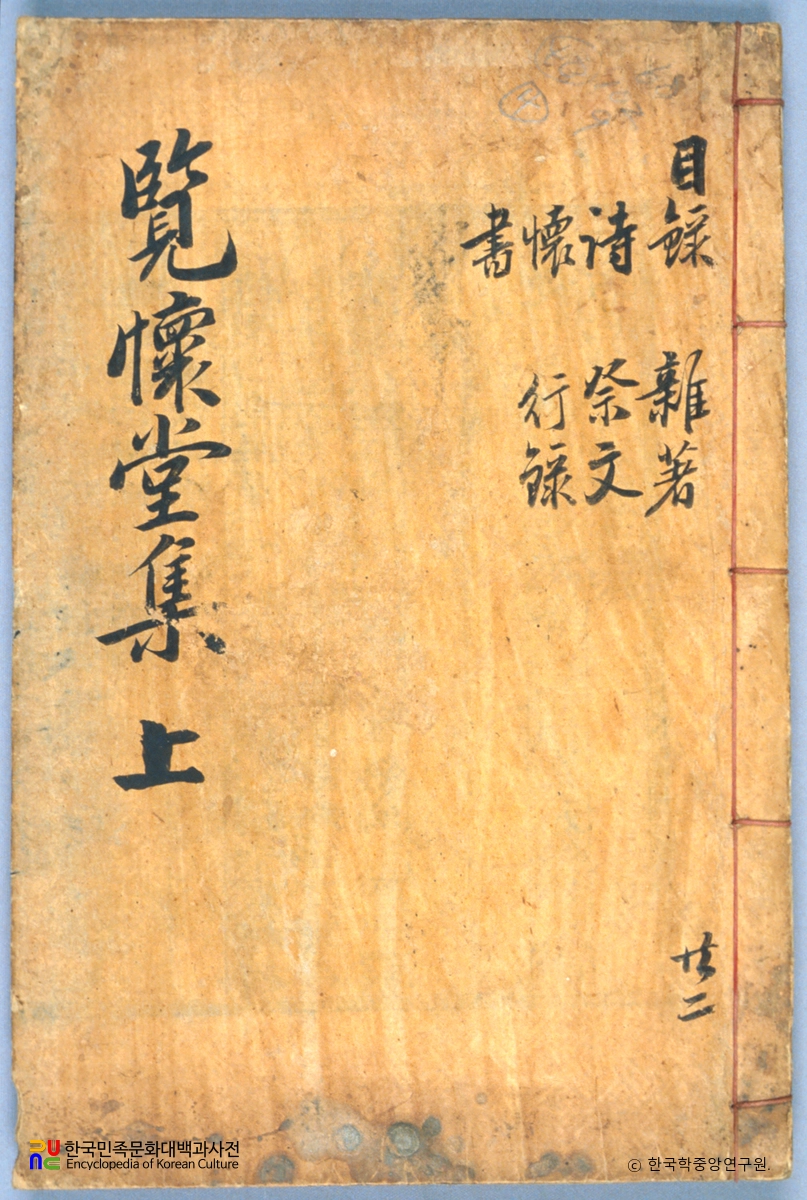 目錄 雜著
詩 祭文
懷 行錄
書
共二
覽懷堂集 上
한국민족문화대백과사전
Encyclopedia of Korean Culture
ⓒ 한국학중앙연구원.